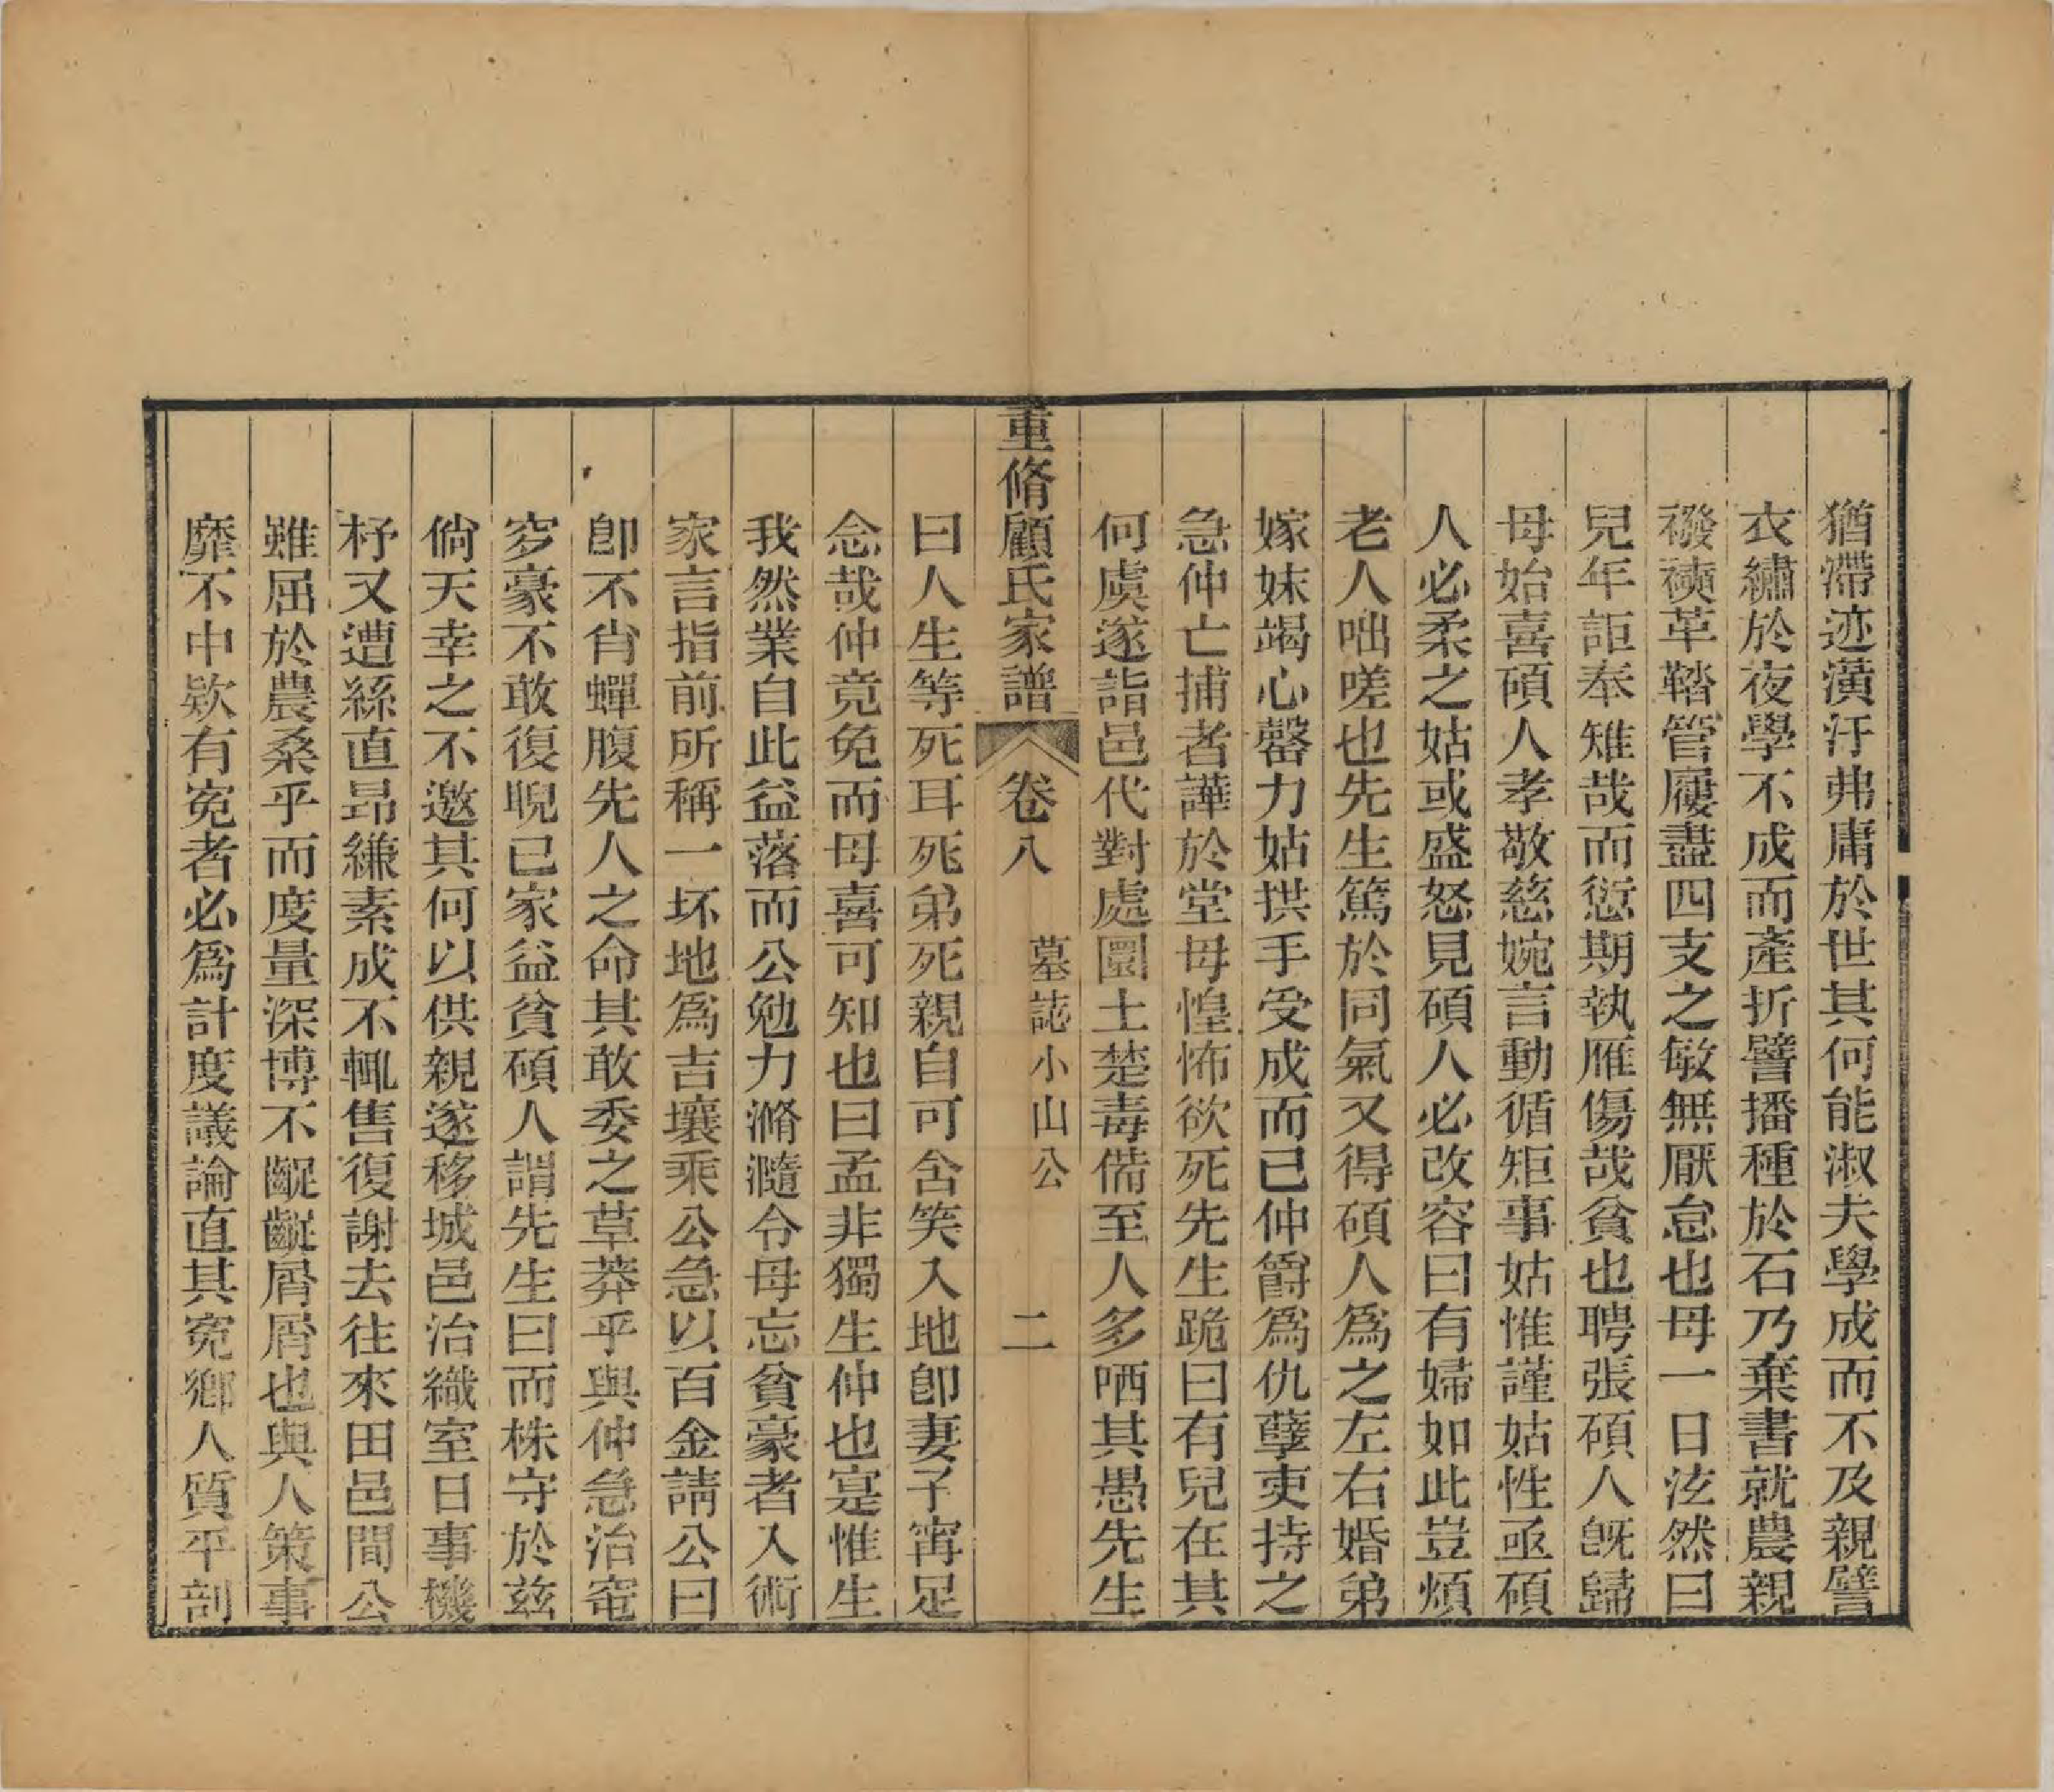 猶滯迹潢汙弗庸於世其何能淑夫學成而不及親譬
衣繡於夜學不成而產折譬播種於石乃棄書就農親
襏襫革鞜管屨盡四支之敏無厭怠也母一日泫然曰
兒年詎奉雉哉而愆期執雁傷哉貧也聘張碩人旣歸
母始喜碩人孝敬慈婉言動循矩事姑惟謹姑性亟碩
人必柔之姑或盛怒見碩人必改容曰有婦如此豈煩
老人咄嗟也先生篤於同氣又得碩人爲之左右婚弟
嫁妹竭心罄力姑拱手受成而已仲爵爲仇孽吏持之
急仲亡捕者譁於堂母惶怖欲死先生跪曰有兒在其
何虞遂詣邑代對處圜土楚毒備至人多哂其愚先生
重脩顧氏家譜 卷八 墓誌小山公 二
曰人生等死耳死弟死親自可含笑入地卽妻子甯足
念哉仲竟免而母喜可知也曰孟非獨生仲也寔惟生
我然業自此益落而公勉力滫瀡令母忘貧豪者入術
家言指前所稱一坏地爲吉壤乘公急以百金請公曰
卽不肖蟬腹先人之命其敢委之草莽乎與仲急治窀
穸豪不敢復睨已家益貧碩人謂先生曰而株守於茲
倘天幸之不邀其何以供親遂移城邑治織室日事機
杼又遭絲直昂縑素成不輒售復謝去往來田邑間公
雖屈於農桑乎而度量深博不齷齪屑屑也與人策事
靡不中欵有寃者必爲計度議論直其寃鄉人質平剖